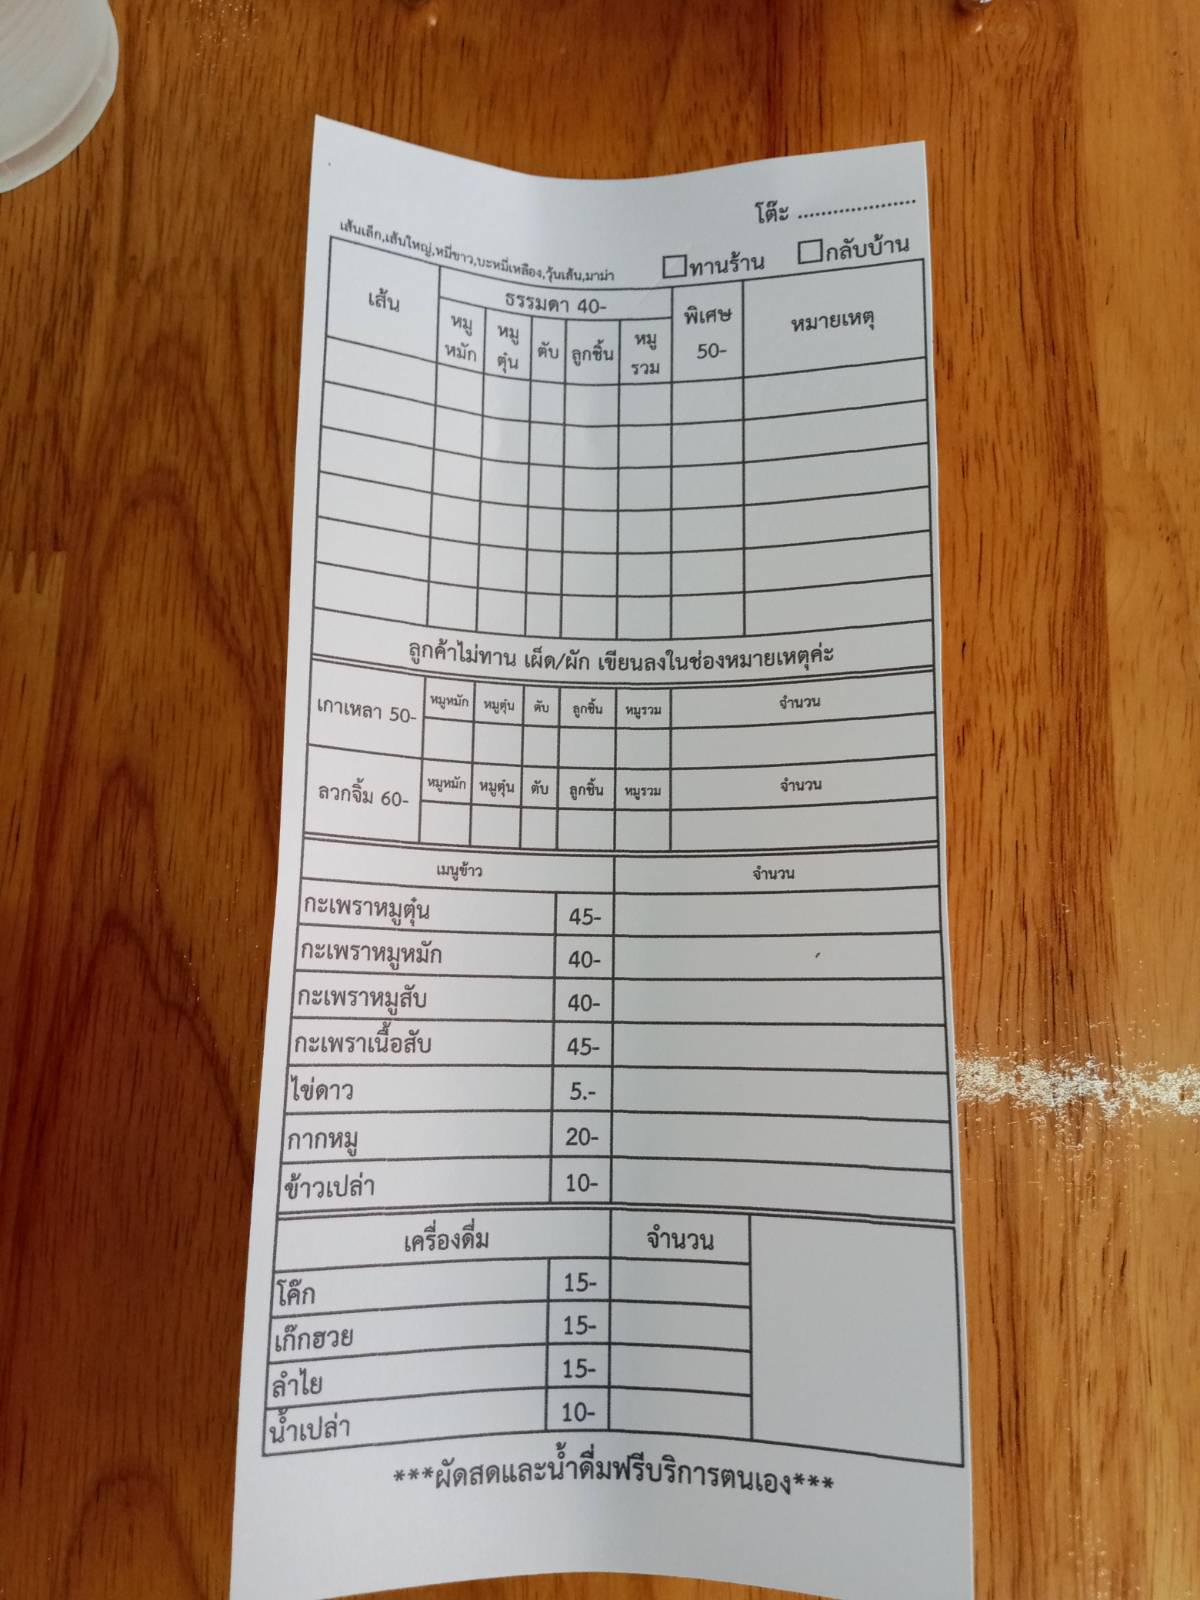 โต๊ะ ......................
เส้นเล็ก,เส้นใหญ่,หมี่ขาว,บะหมี่เหลือง,วุ้นเส้น,มาม่า
ทานร้าน กลับบ้าน
เส้น ธรรมดา 40- พิเศษ 50- หมายเหตุ
หมูหมัก หมูตุ๋น ตับ ลูกชิ้น หมูรวม
ลูกค้าไม่ทาน เผ็ด/ผัก เขียนลงในช่องหมายเหตุค่ะ
เกาเหลา 50- หมูหมัก หมูตุ๋น ตับ ลูกชิ้น หมูรวม จำนวน
ลวกจิ้ม 60- หมูหมัก หมูตุ๋น ตับ ลูกชิ้น หมูรวม จำนวน
เมนูข้าว จำนวน
กะเพราหมูตุ๋น 45-
กะเพราหมูหมัก 40-
กะเพราหมูสับ 40-
กะเพราเนื้อสับ 45-
ไข่ดาว 5.-
กากหมู 20-
ข้าวเปล่า 10-
เครื่องดื่ม จำนวน
โค๊ก 15-
เก๊กฮวย 15-
ลำไย 15-
น้ำเปล่า 10-
***ผัดสดและน้ำดื่มฟรีบริการตนเอง***